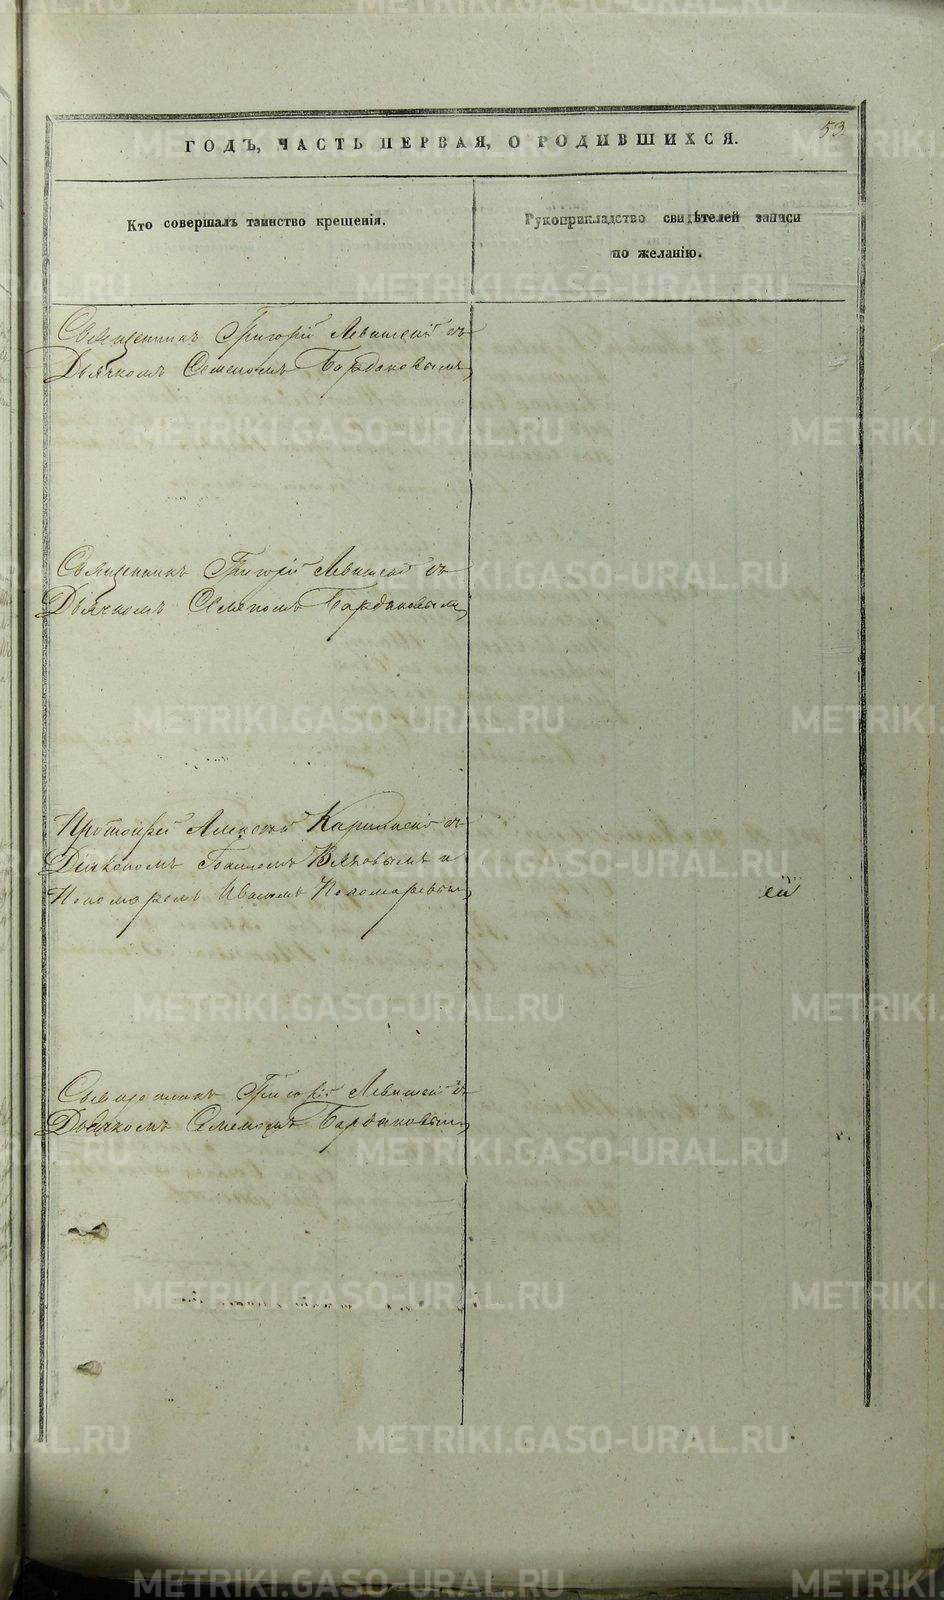 53
ГОДЪ, ЧАСТЬ ПЕРВАЯ, О РОДИВШИХСЯ.
Кто совершалъ таинство крещенія.
Рукоприкладство свидѣтелей записи
по желанію.
Священникъ Григорій Левитскій съ
Дьячкомъ Семеномъ Бардаковымъ
Священникъ Григорій Левитскій съ
Дьячкомъ Семеномъ Бардаковымъ
Протоіерей Алексѣй Карпинскій съ
Діакономъ Іоанномъ Вязовымъ и
Пономаремъ Иваномъ Пономаревымъ
ей
Священникъ Григорій Левитскій съ
Дьячкомъ Семеномъ Бардаковымъ
METRIKI.GASO-URAL.RU